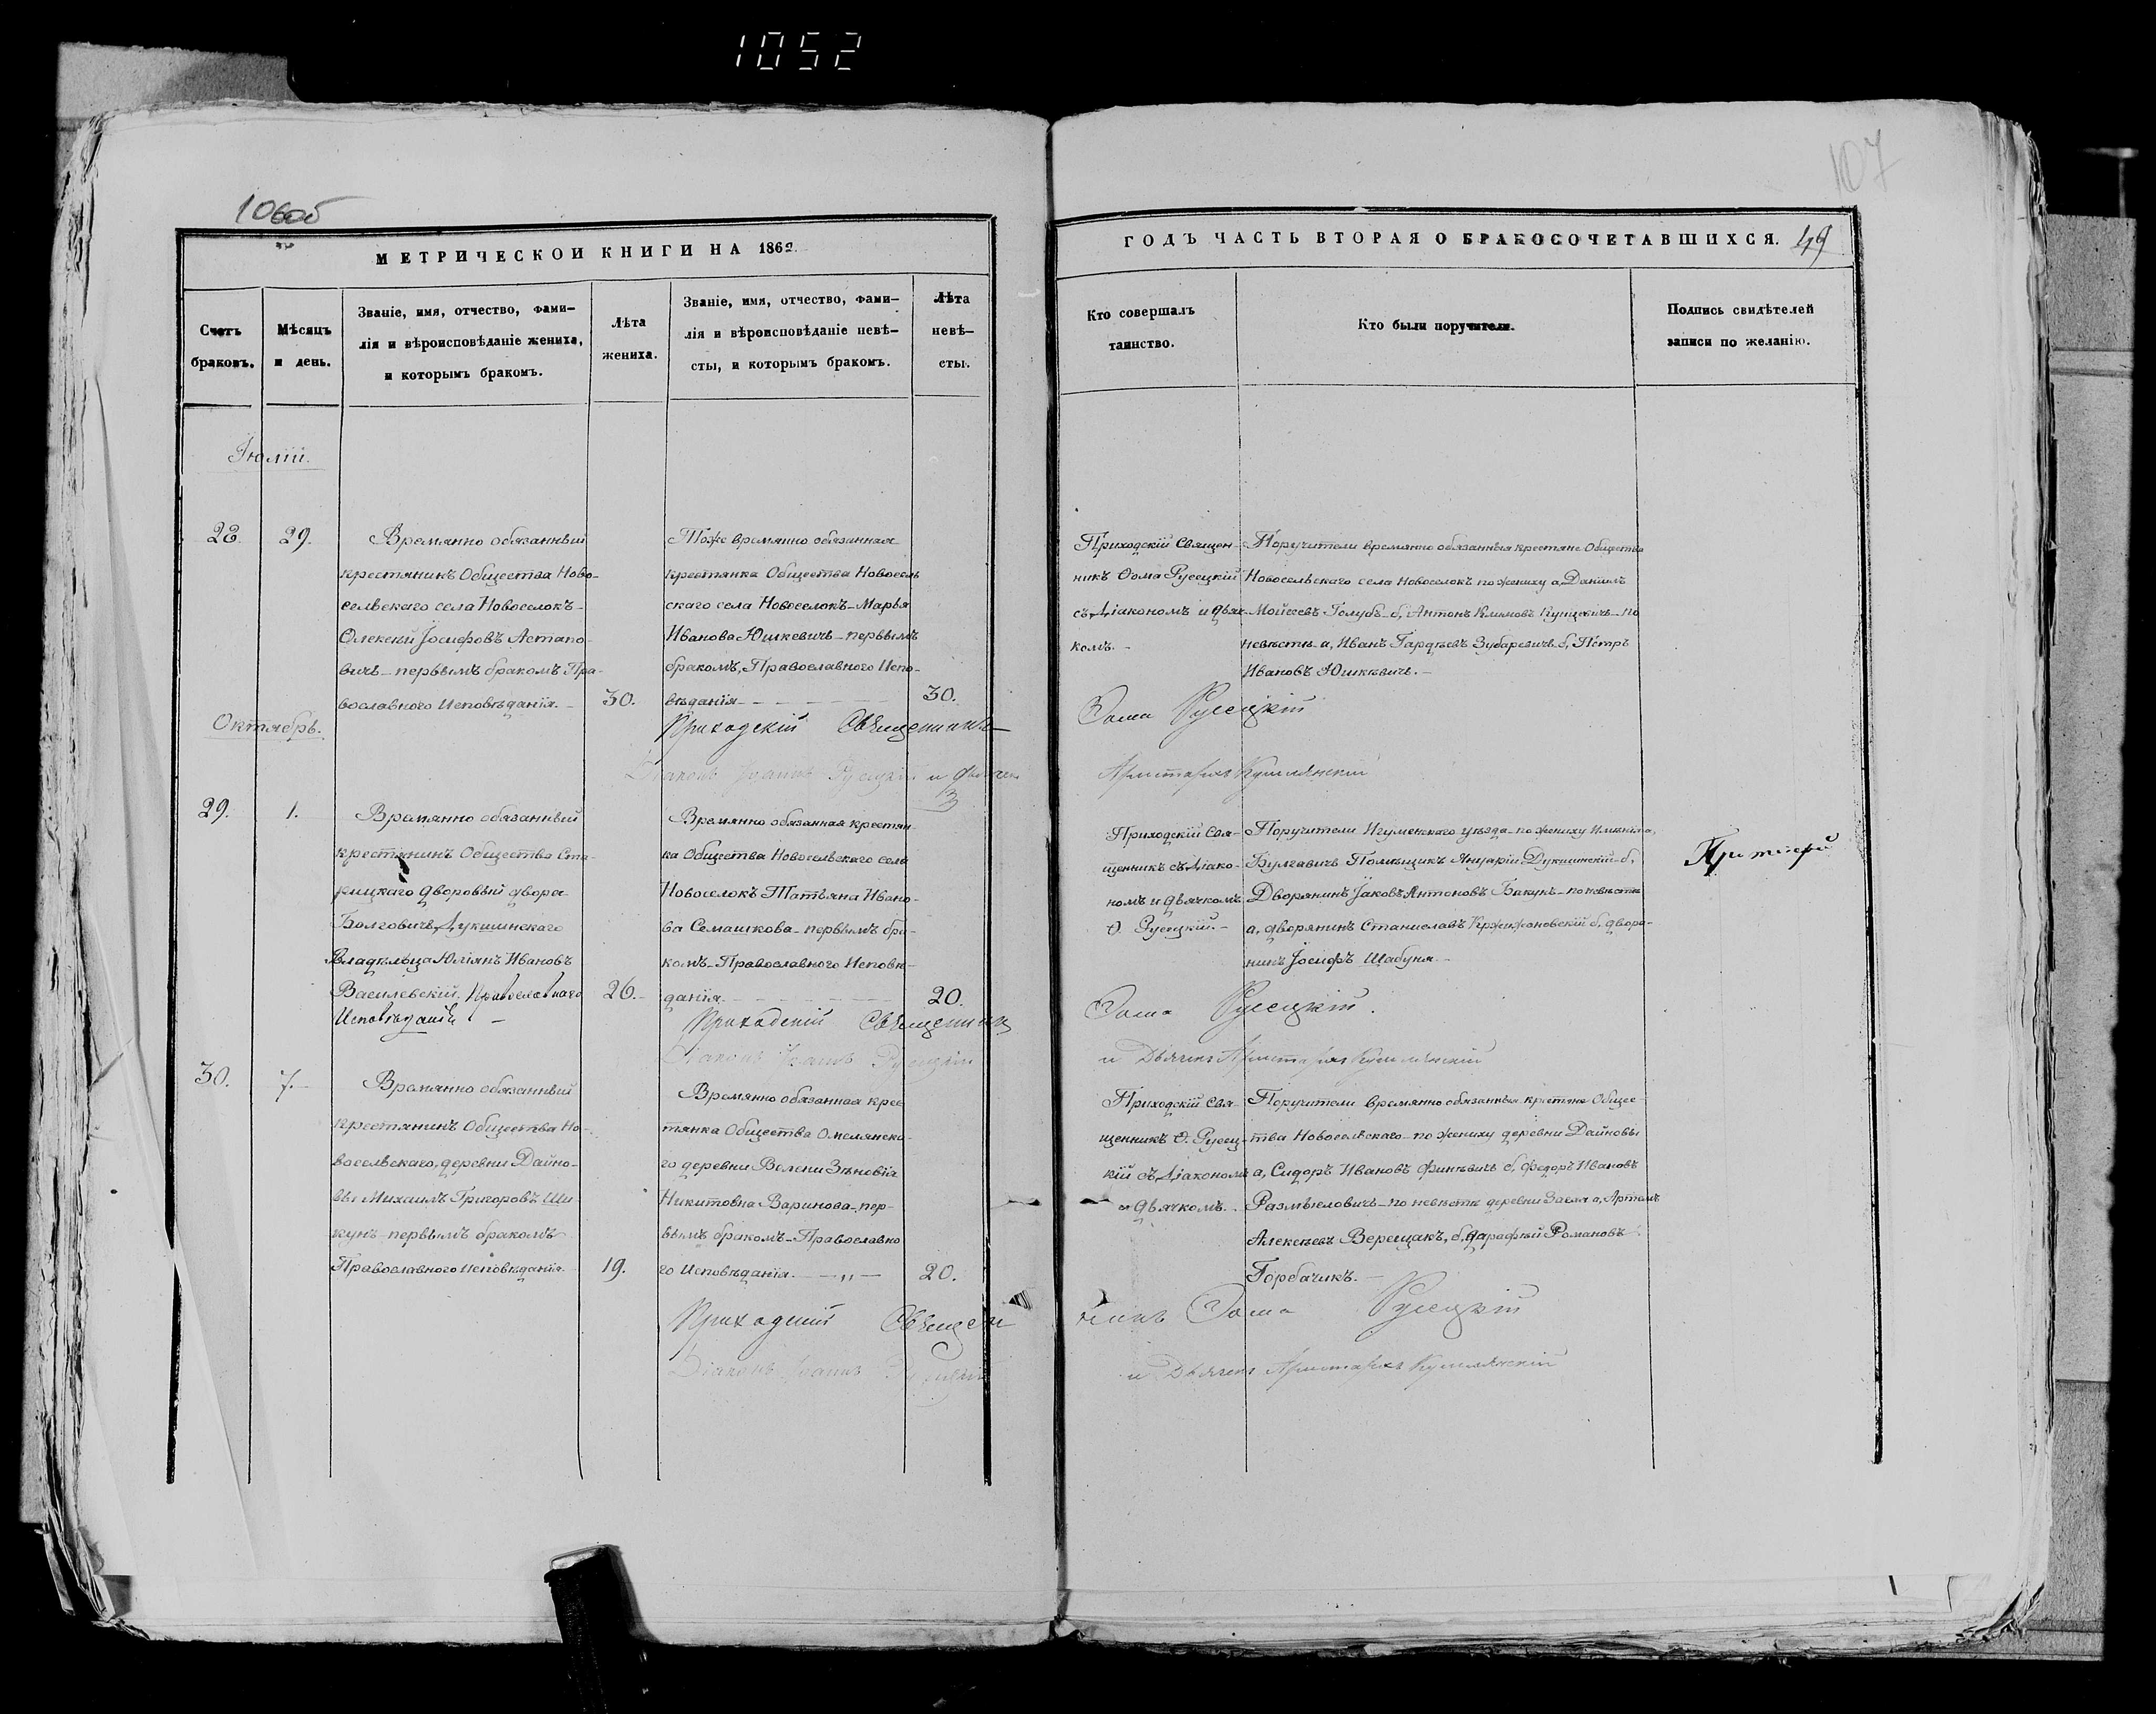 1052
106об
107
МЕТРИЧЕСКОЙ КНИГИ НА 1862
Счетъ
браковъ.
Мѣсяцъ
и день.
Званіе, имя, отчество, фами-
лія и вѣроисповѣданіе жениха,
и которымъ бракомъ.
Лѣта
жениха.
Званіе, имя, отчество, фами-
лія и вѣроисповѣданіе невѣ-
сты, и которымъ бракомъ.
Лѣта
невѣ-
сты.
ГОДЪ ЧАСТЬ ВТОРАЯ О БРАКОСОЧЕТАВШИХСЯ.
49
Кто совершалъ
таинство.
Кто были поручители.
Подпись свидѣтелей
записи по желанію.
Іюлій.
28.
29.
Времянно обязанный
крестянинъ Общества Ново-
сельскаго села Новоселокъ-
Олексѣй Іосифовъ Астапо-
вичъ - первымъ бракомъ Пра-
вославного Исповѣданія. -
30.
Тоже времянно обязанная
крестянка Общества Новосель
скаго села Новоселокъ - Марья
Иванова Юшкевичъ - первымъ
бракомъ, Православного Испо-
вѣданія - - - -
30.
Приходскій Священ-
никъ Ѳома Русецкій
съ Діакономъ и дьяч-
комъ. -
Поручители времянно обязанныя крестяне Общества
Новосельскаго села Новоселокъ по жениху а, Даніилъ
Мойсеевъ Голубъ - б, Антонъ Климовъ Кунцевичъ - по
невѣстѣ - а, Иванъ Гардѣевъ Зубаревичъ б, Пётръ
Ивановъ Юшкевичъ. -
Приходскій Священникъ
Ѳома Русецкій
Діаконъ Іоаннъ Русецкій и дьячекъ
Аристархъ
Октябрь.
29.
1.
Времянно обязанный
крестянинъ Общества Ста-
рицкаго дворовый двора
Болговичъ Дукшинскаго
Владѣльца Юліянъ Ивановъ
Василевскій, Православнаго
Исповѣданія -
26. -
3
Времянно обязанная крестян-
ка Общества Новосельскаго села
Новоселокъ Татьяна Ивано-
ва Семашкова - первымъ бра-
комъ - Православного Исповѣ-
данія. - - - -
20.
Приходскій Свя-
щенникъ съ Діако-
номъ и дьячкомъ
Ѳ. Русецкій. -
Поручители Игуменскаго уѣзда - по жениху Имѣнія,
Булгавичъ Помѣщикъ Януарій Дукшинскій - б,
Дворянинъ Іаковъ Антоновъ Бакунъ - по невѣстѣ
а, дворянинъ Станиславъ Кржижановскій б, дворя-
нинъ Іосифъ Шабуня -
Приходскій Священникъ
Ѳома Русецкій.
Діаконъ Іоаннъ Русецкій
и Дьячекъ Аристархъ
30.
7. -
Времянно обязанный
крестянинъ Общества Но-
восельскаго, деревни Дайно-
вы Михаилъ Григоровъ Ши-
кунъ - первымъ бракомъ
Православного Исповѣданія.
19.
Времянно обязанная крес
тянка Общества Омелянско-
го деревни Велени Зѣновія
Никитовна Варинова - пер-
вымъ бракомъ - Православно
го Исповѣданія. - „ -
20.
Приходскій Свя-
щенникъ Ѳ. Русец-
кій съ Діакономъ
и дьячкомъ. -
Поручители времянно обязанныя крестяне Общес-
тва Новосельскаго - по жениху деревни Дайновы
а, Сидоръ Ивановъ Финкевичъ б, Федоръ Ивановъ
Размысловичъ - по невѣстѣ деревни а, Артемъ
Алексѣевъ Верещакъ, б, Романовъ
Горбачикъ. -
Приходскій Священ
никъ Ѳома Русецкій
Діаконъ Іоаннъ Русецкій
и Дьячекъ Аристархъ